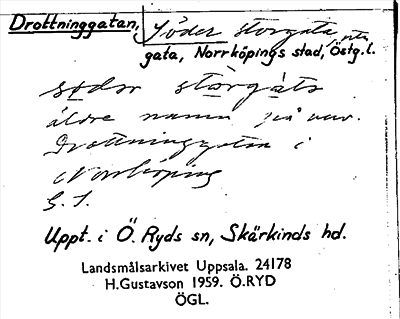 Drottninggatan, Söder storgata,
gata, Norrköpings stad, Östg.l.
södər storgata
äldre namn på nuv.
Drottninggatan i
Norrköping
G. S.
Uppt. i Ö. Ryds sn, Skärkinds hd.
Landsmålsarkivet Uppsala. 24178
H.Gustavson 1959. Ö.RYD
ÖGL.